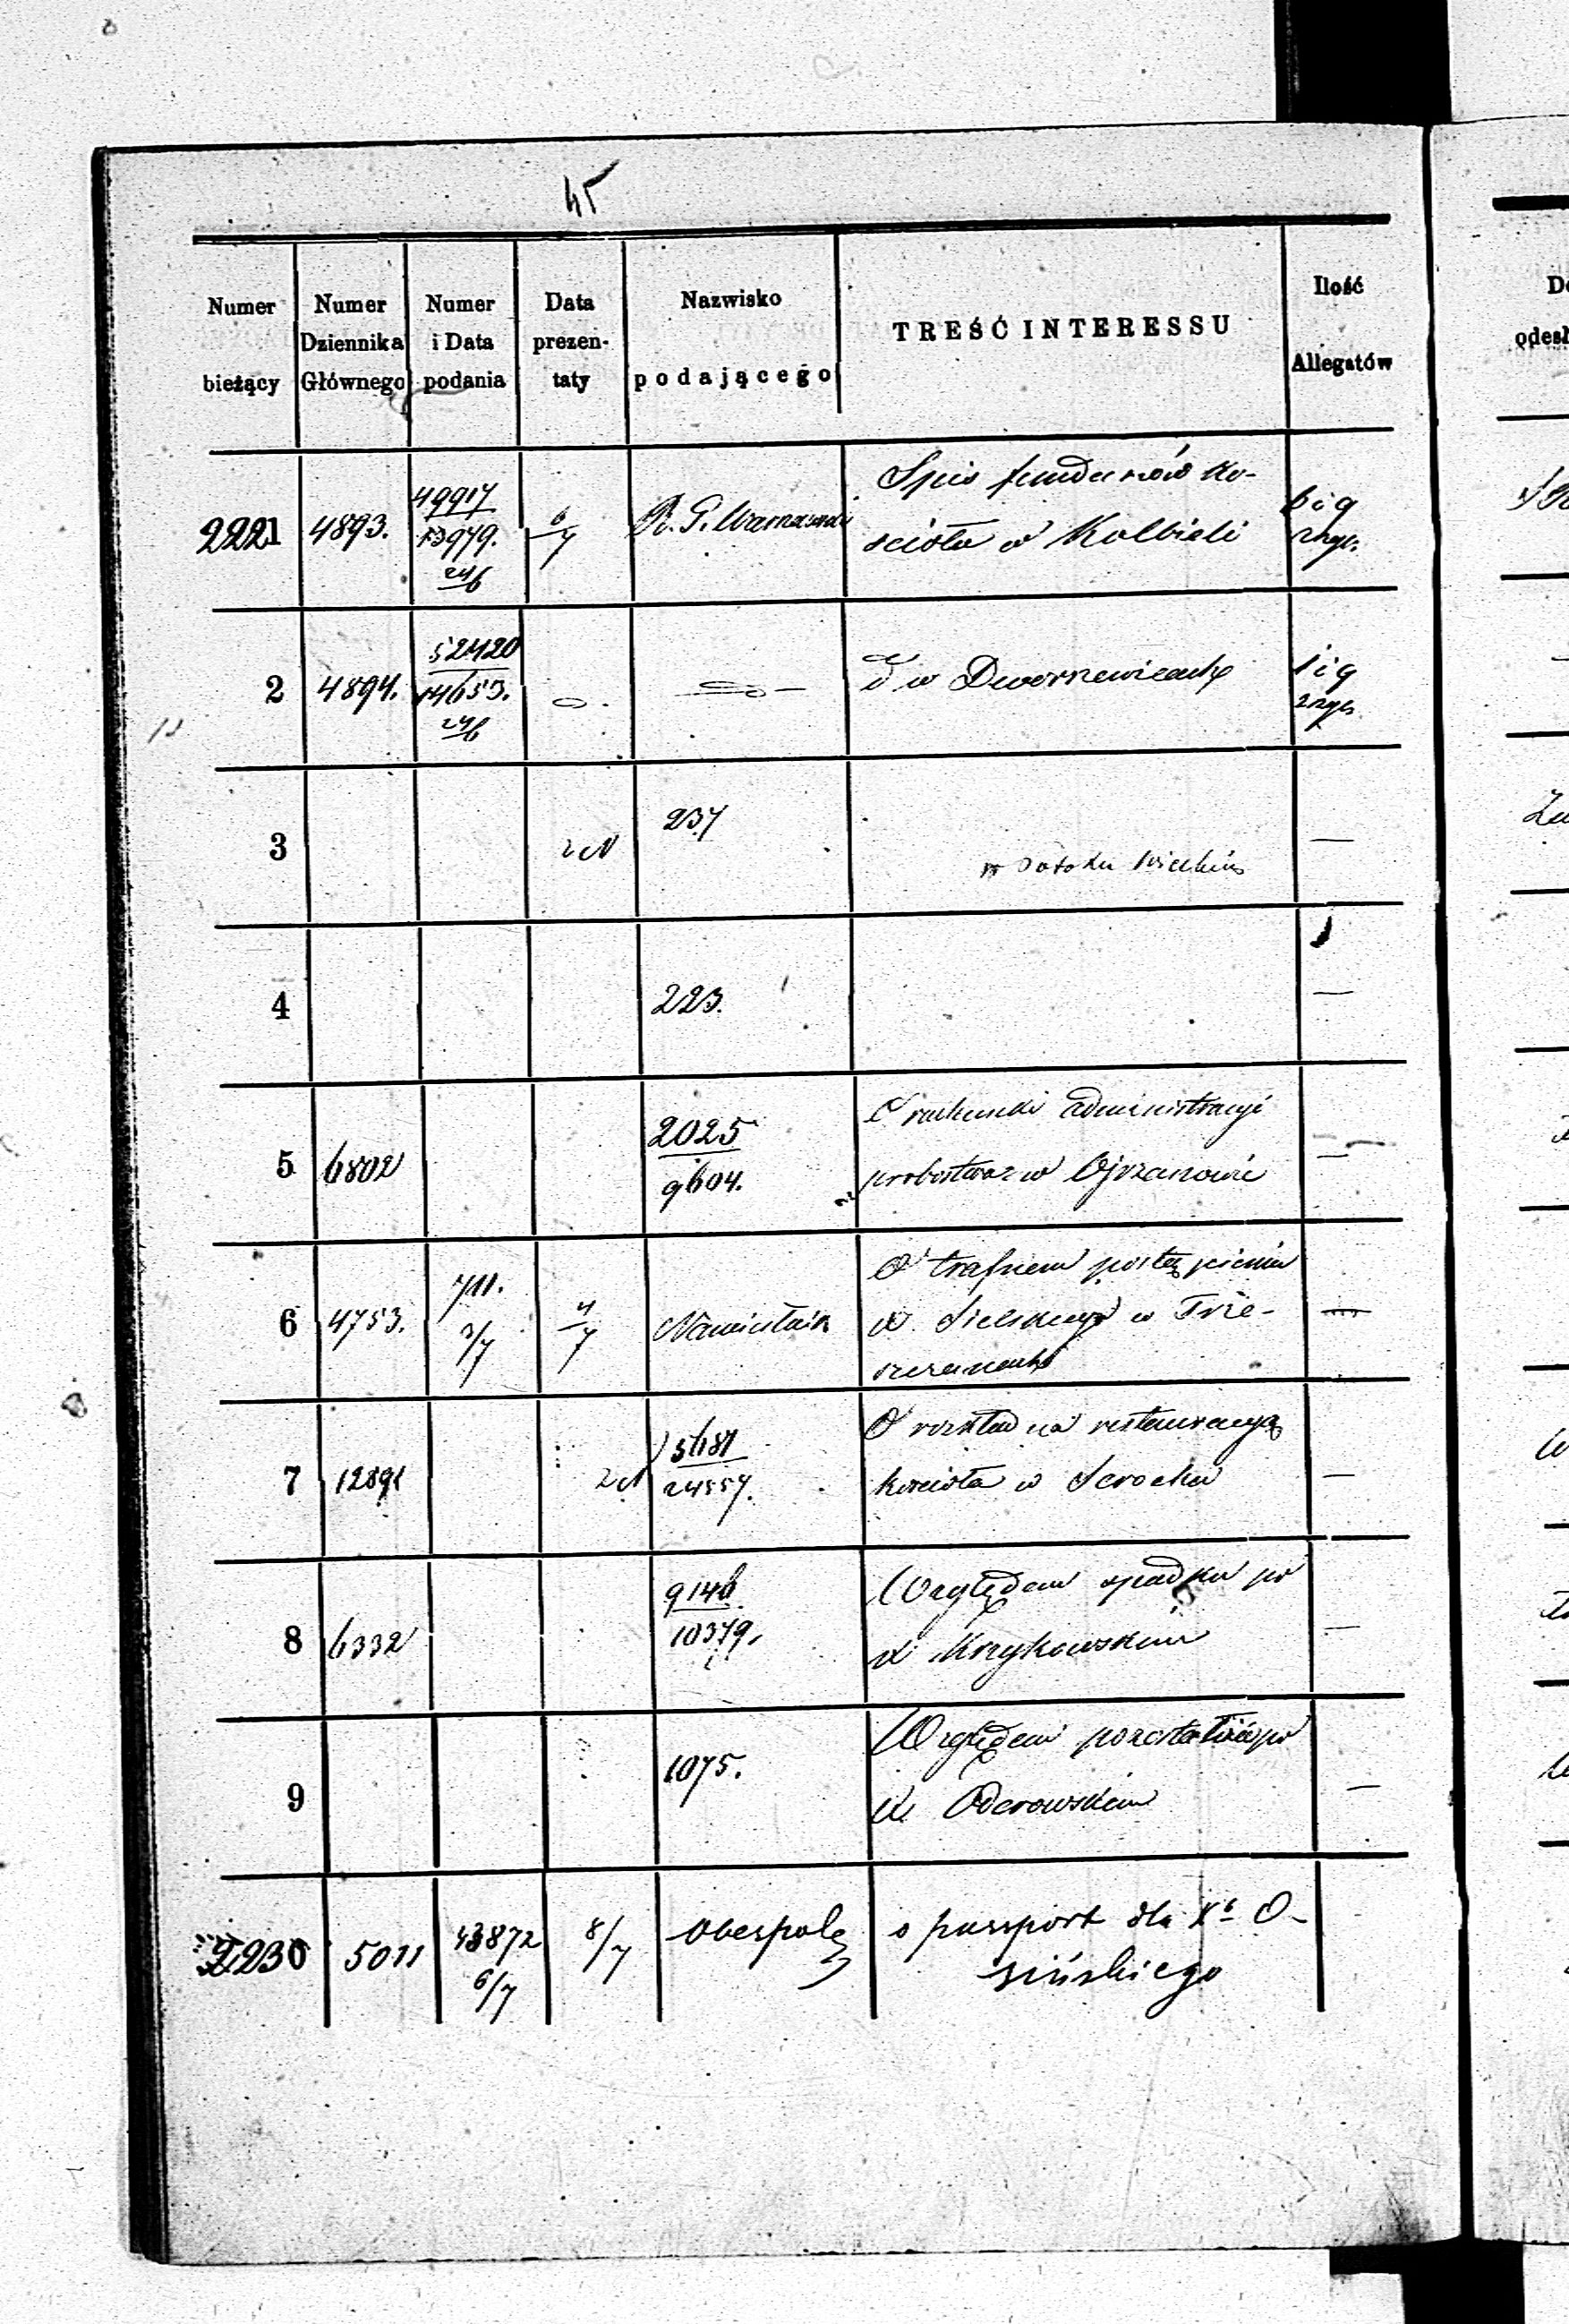 45
Numer bieżący
Numer Dziennika Głównego
Numer i Data podania
Data prezentaty
Nazwisko podającego
TREŚĆ INTERESSU
Ilość Allegatów
2221 4893. 49917 6
13979. 7
24/6
R. G. Warszawski
Spis funduszów ko-
ścioła w Kolbieli
6 i 9
2 4894. 52420
14653.
24/6
w Dworszewicach
1 i 9
3 237
w Potoku Wielkim
4 223.
5 6802 2025
9604.
O rachunki administracyi
probostwa w Ojrzanowie
6 4753. 711. 4
3/7 7
Namiestnik
O trafnem postąpieniu
X. Sielskiego w Trze-
7 12891 5681
24557.
O rozkład na restauracyą
kościoła w Serocku
8 6332 9146
10379.
Względem spadku po
X. Krzykowskim
9 1075.
Względem pozostałości po
X. Oderowskim
2230 5011 43872 8/7
6/7
Oberpolc
o passport dla Xa O-
sińskiego